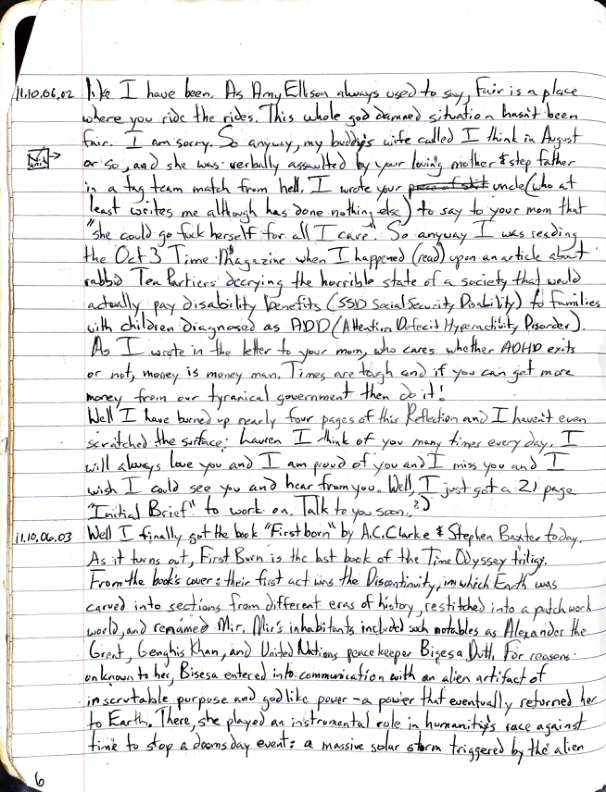 11.10.06.02 like I have been. As Amy Ellison always used to say, Fair is a place
where you ride the rides. This whole god damned situation hasn't been
fair. I am sorry. So anyway, my buddy's wife called I think in August
or so, and she was verbally assaulted by your loving mother & step father
in a tag team match from hell. I wrote your piece of shit uncle (who at
least writes me although has done nothing else) to say to your mom that
"she could go fuck herself for all I care". So anyway I was reading
the Oct 3 Time Magazine when I happened (read) upon an article about
rabbid Tea Partiers decrying the horrible state of a society that would
actually pay disability benefits (SSID Social Security Disability) to families
with children diagnosed as ADD (Attention Defecit Hyperactibity Disorder).
As I wrote in the letter to your mom, who cares whether ADHD exits
or not, money is money man. Times are tough and if you can get more
money from our tyranical government then do it!
Well I have burned up nearly four pages of this Reflection and I haven't even
scratched the surface. Lauren I think of you many times every day. I
will always love you and I am proud of you and I miss you and I
wish I could see you and hear from you. Well, I just got a 21 page
"Initial Brief" to work on. Talk to you soon.
11.10.06.03 Well I finally got the book "Firstborn" by A.C. Clarke & Stephen Baxter today.
As it turns out, First Born is the last book of the Time Odyssey trilogy.
From the book's cover: their first act was the Discontinuity, in which Earth was
carved into sections from different eras of history, restitched into a patchwork
world, and renamed Mir. Mir's inhabitants included such notables as Alexander the
Great, Genghis Khan, and United Nations peacekeeper Bisesa Dutt. For reasons
unknown to her, Bisesa entered into communication with an alien artifact of
inscrutable purpose and godlike power - a power that eventually returned her
to Earth. There, she played an instromental role in humanity's race against
time to stop a doomsday event: a massive solar storm triggered by the alien
6